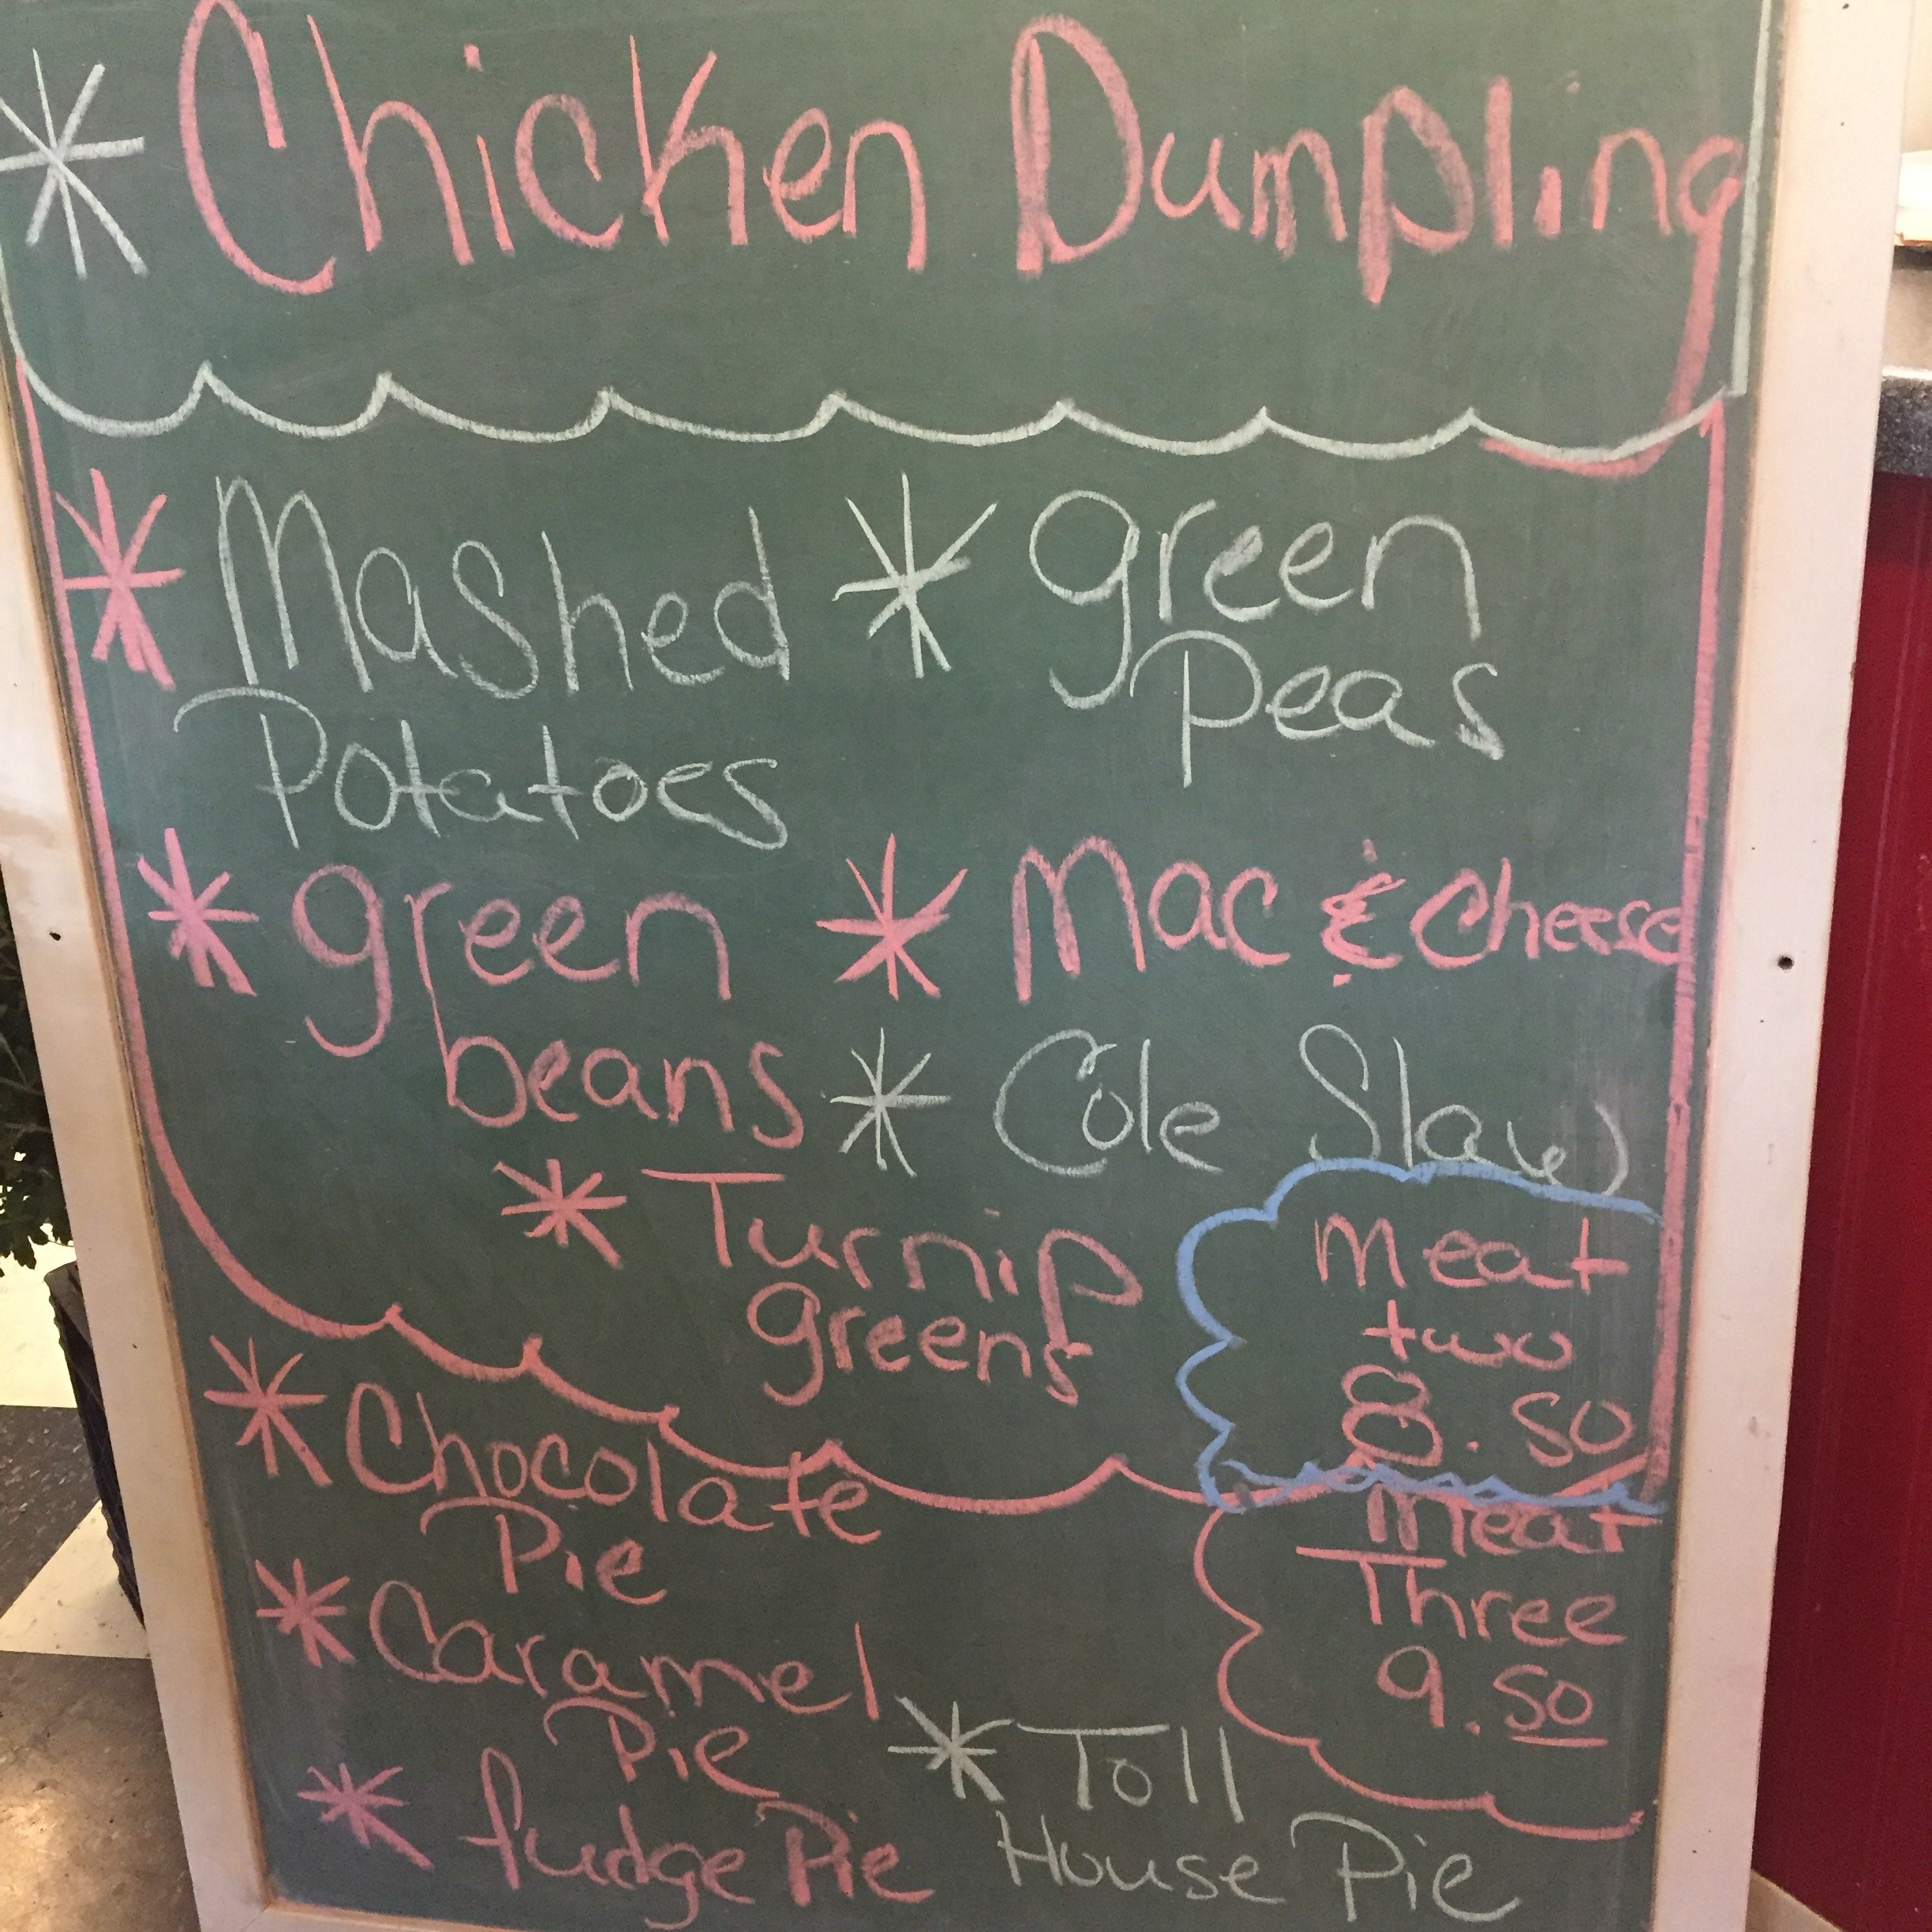 * Chicken Dumpling
* Mashed
Potatoes
* green
Peas
* green
beans
* Mac & Cheese
* Cole Slaw
* Turnip
greens
Meat
two
8.50
* Chocolate
Pie
* Caramel
Pie
* fudge Pie
* Toll
House Pie
Meat
Three
9.50